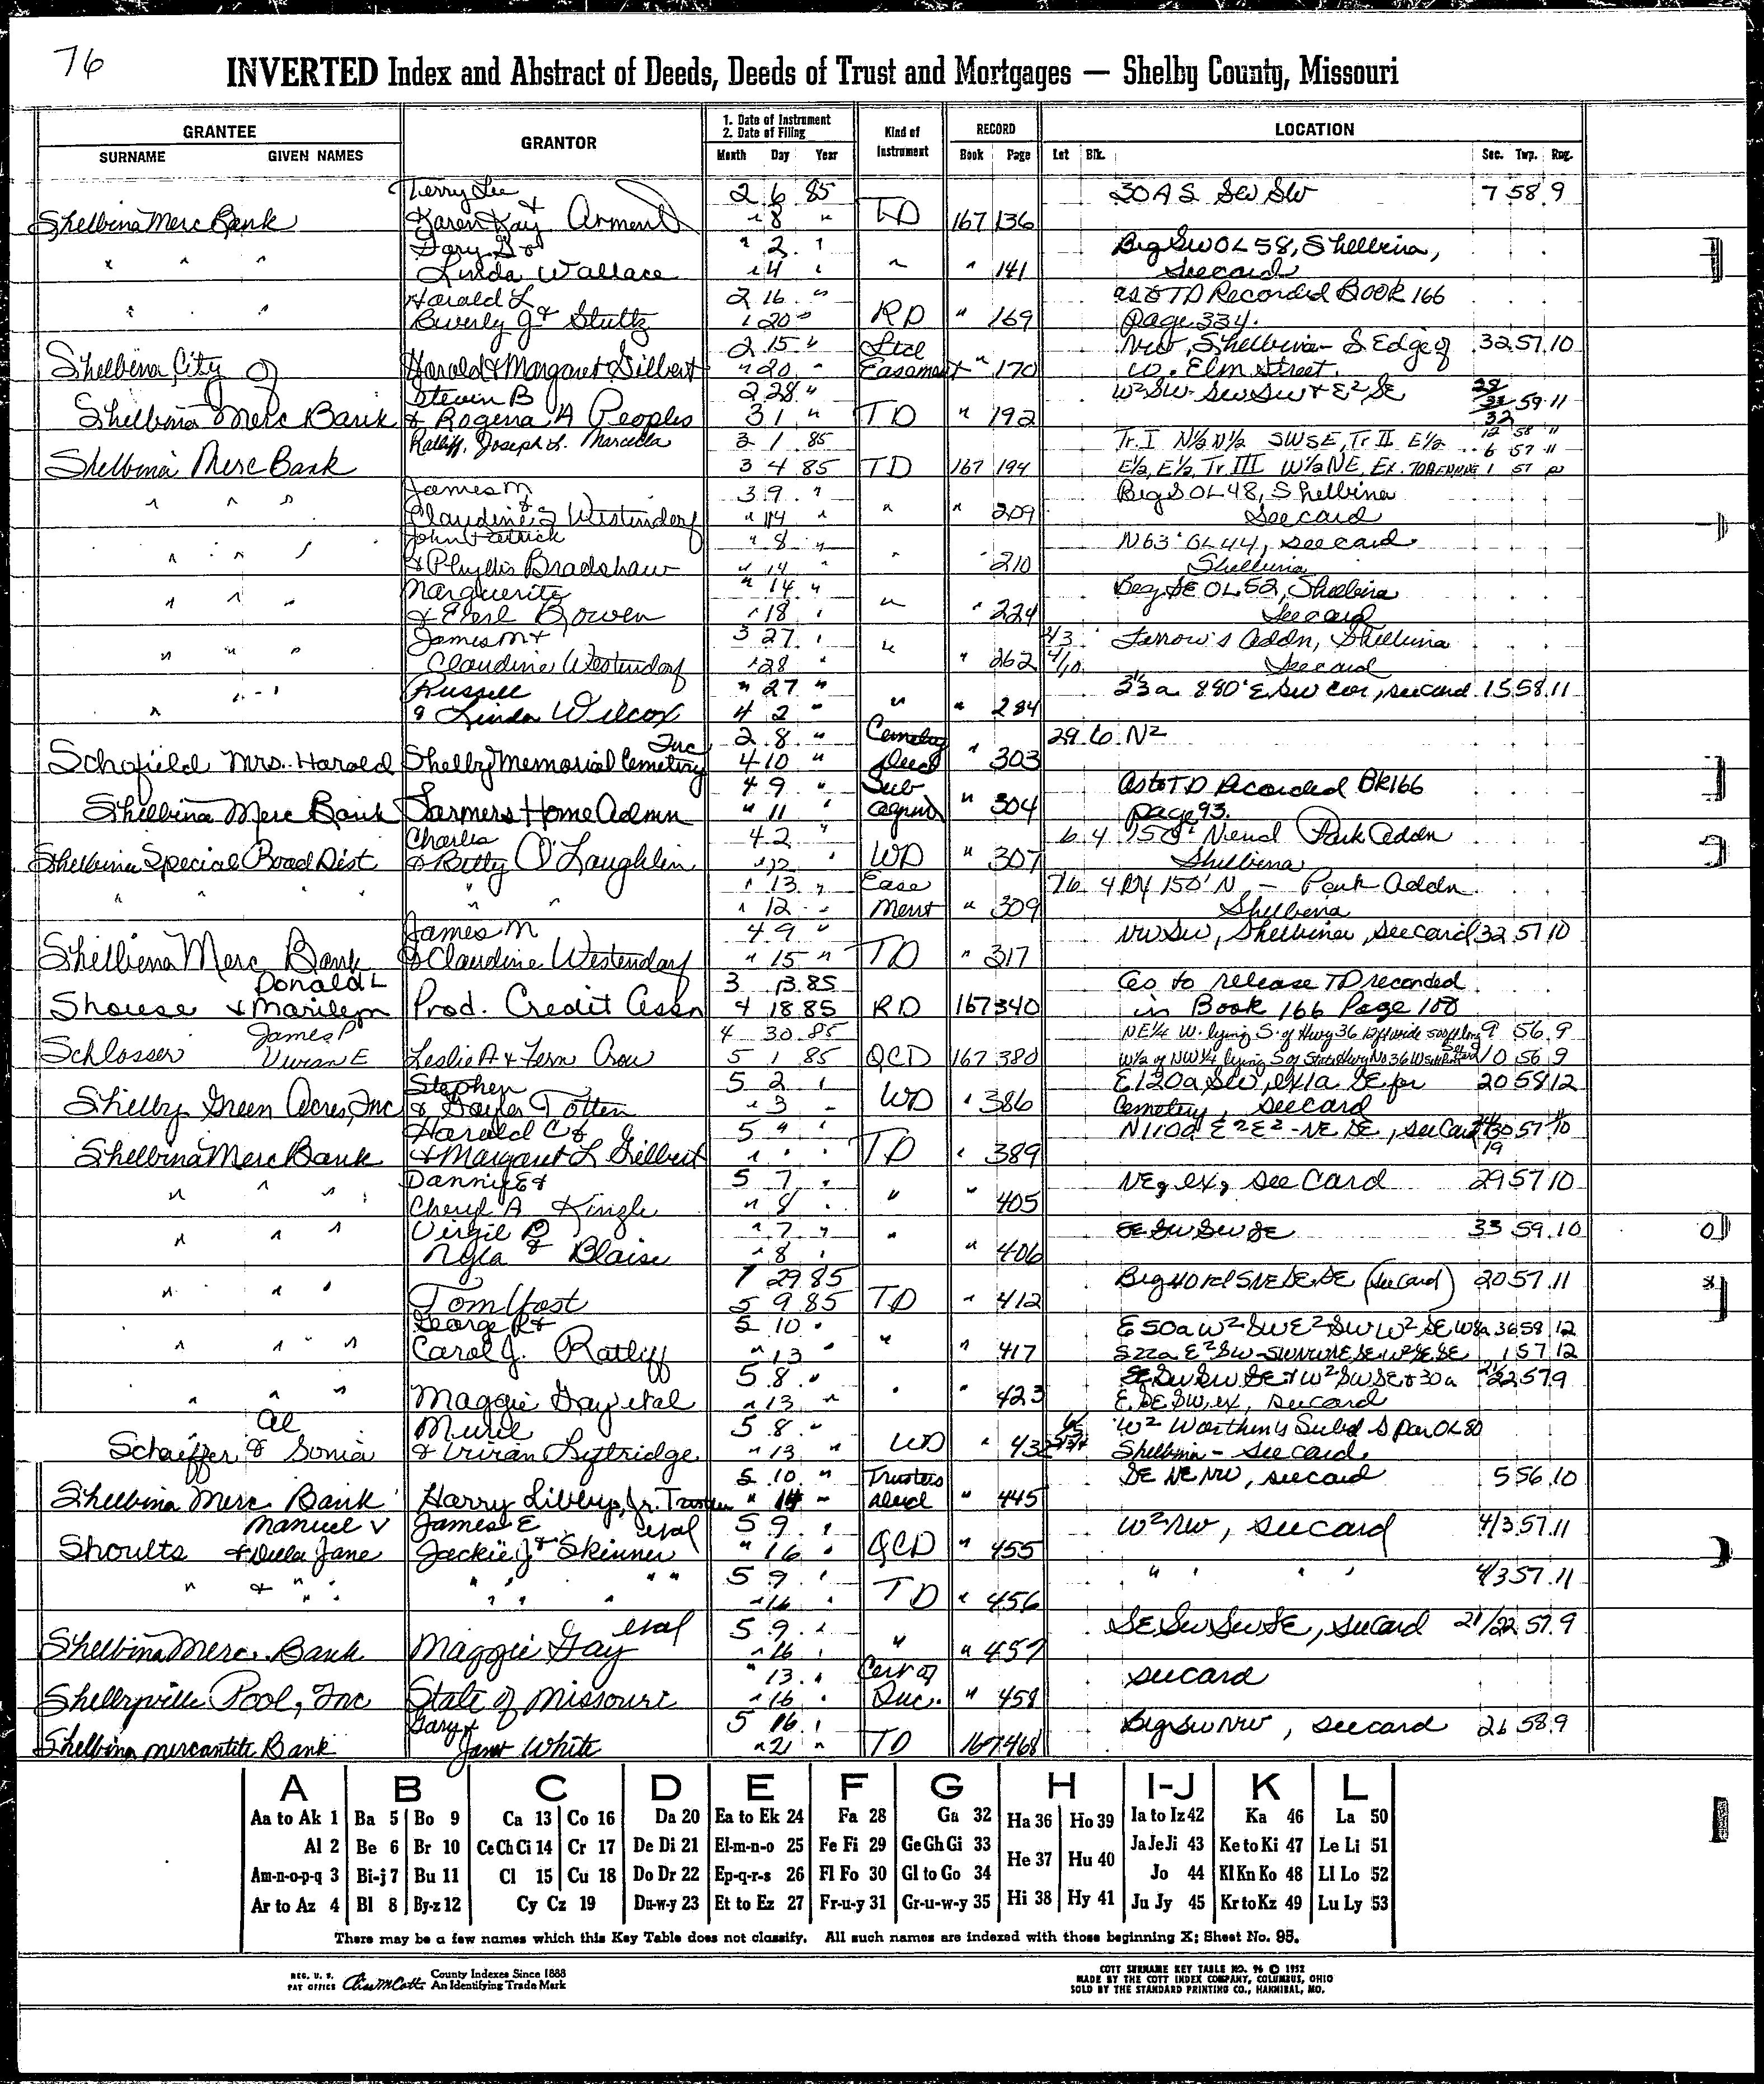 76
INVERTED Index and Abstract of Deeds, Deeds of Trust and Mortgages — Shelby County, Missouri
GRANTEE GRANTOR 1. Date of Instrument 2. Date of Filing Kind of Instrument RECORD LOCATION
SURNAME GIVEN NAMES Month Day Year Book Page Lot Blk. Sec. Twp. Rng.
Terry Lee & 2 6 85 30 A S SW SW 7 58 9
Shelbina Merc Bank Karen Kay Arment " 8 " TD 167 136
Gary G & " 2 " Beg SW OL 58, Shelbina,
" " " Linda Wallace " 4 " " " 141 see card
Harald L 2 16 " as to TD Recorded BOOK 166
" " Beverly J & Stultz " 20 " RD " 169 page 334.
2 15 " NW, Shelbina - S Edge of 32 57 10
Shelbina, City of Harold & Margaret Gilbert " 20 " Easement " 170 W. Elm Street
Steven B 2 28 " W² SW SW SW & E² SE 59 11
Shelbina Merc Bank & Rogena A Peoples 3 1 " TD " 192 32
Ratliff, Joseph L. Marcella 3 1 85 Tr. I N½ N½ SW SE, Tr II E½ 12 58 " 6 57 "
Shelbina Merc Bank 3 4 85 TD 167 194 E½, E½, Tr III W½ NE, Ex. 1 57
James M & 3 9 " Beg S OL 48, Shelbina
" " " Claudine S Westendorf " 14 " " " 209 See card
John Patrick " 8 " N 63' OL 44, see card
" " " & Phyllis Bradshaw " 14 " " 210 Shelbina
Marguerite " 14 " Beg SE OL 52, Shelbina
" " " & Earl Bowen " 18 " " " 224 see card
James M & 3 27 " Farrow's Addn, Shelbina
" " " Claudine Westendorf " 28 " " " 262 See card
Russell " 27 " 33a 880' E SW cor, see card 15 58 11
" & Linda Wilcox 4 2 " " " 284
Inc 2 8 " Cemetery 29 6 N²
Schofield Mrs. Harold Shelby Memorial Cemetery 4 10 " Deed " 303
4 9 " Sub As to TD Recorded BK 166
Shelbina Merc Bank Farmers Home Admn " 11 " agrmt " 304 page 93.
Charles 4 2 " 6 4 150' N end Park Addn
Shelbina Special Road Dist & Betty O'Laughlin " 12 " WD " 307 Shelbina
" 13 " Ease 7 6 4 150' N - Park Addn
" " " " " " 12 " ment " 309 Shelbina
James M 4 9 " NW SW, Shelbina, see card 32 57 10
Shelbina Merc Bank & Claudine Westendorf " 15 " TD " 317
Donald L 3 13 85 As to release TD recorded
Shouse & Marilyn Prod. Credit Assn 4 18 85 RD 167 340 in Book 166 Page 100
James P 4 30 85 NE¼ W. lying S. of Hwy 36 9 56 9
Schlosser Vivian E Leslie A & Fern Crow 5 1 85 QCD 167 380 W½ of NW¼ lying S of State Hwy No 36 10 56 9
Stephen 5 2 " E 120a SW, ex 1a SE for 20 58 12
Shelby Green Acres, Inc & Gayla Totten " 3 " WD " 386 Cemetery, see card
Harald C & 5 " " N 110a E² E² - NE SE, see Card 30 57 10
Shelbina Merc Bank & Margaret L Gilbert " " " TD " 389 19
Danny E & 5 7 " NE, ex, see Card 29 57 10
" " " Cheryl A Kingle " 8 " " " 405
Virgil P " 7 " SE SW SW SE 33 59 10
" " " Nyla & Blaise " 8 " " " 406
1 29 85 (see Card) 20 57 11
" " " Tom Yost 5 9 85 TD " 412
George R & 5 10 " E 50a W² SW E² SW W² SE 36 58 12
" " " Carol J. Ratliff " 13 " " " 417 S 22a E² SW 1 57 12
5 8 " SE SW SW SE & W² SW SE & 30a 21/22 57 9
" " " Maggie Gay etal " 13 " " " 423 E SE SW, ex, see card
Al Muril 5 8 " W² Worthen's Subd S par OL 80
Schaeffer & Sonia & Vivian Lyttridge " 13 " WD " 432 Shelbina - see card.
5 10 " Trustees SE NE NW, see card 5 56 10
Shelbina Merc. Bank Harry Libby, Jr. Trustee " 14 " deed " 445
Manuel V James E etal 5 9 " W² NW, see card 4/3 57 11
Shoults & Della Jane Jackie J & Skinner " 16 " QCD " 455
5 9 " " " " " 4/3 57 11
" & " " " " " " 16 " TD " 456
etal 5 9 " SE SW SW SE, see Card 21/22 57 9
Shelbina Merc. Bank Maggie Gay " 16 " " " 457
" 13 " Cert of see card
Shelbyville Pool, Inc State of Missouri " 16 " Inc. " 458
Gary & 5 16 " Beg SW NW, see card 26 58 9
Shelbina Mercantile Bank Janet White " 21 " TD 167 468
A B C D E F G H I-J K L
Aa to Ak 1 Ba 5 Bo 9 Ca 13 Co 16 Da 20 Ea to Ek 24 Fa 28 Ga 32 Ha 36 Ho 39 Ia to Iz 42 Ka 46 La 50
Al 2 Be 6 Br 10 Ce Ch Ci 14 Cr 17 De Di 21 El-m-n-o 25 Fe Fi 29 Ge Gh Gi 33 He 37 Hu 40 Ja Je Ji 43 Ke to Ki 47 Le Li 51
Am-n-o-p-q 3 Bi-j 7 Bu 11 Cl 15 Cu 18 Do Dr 22 Ep-q-r-s 26 Fl Fo 30 Gl to Go 34 Jo 44 Kl Kn Ko 48 Ll Lo 52
Ar to Az 4 Bl 8 By-z 12 Cy Cz 19 Du-w-y 23 Et to Ez 27 Fr-u-y 31 Gr-u-w-y 35 Hi 38 Hy 41 Ju Jy 45 Kr to Kz 49 Lu Ly 53
There may be a few names which this Key Table does not classify. All such names are indexed with those beginning X; Sheet No. 95.
REG. U. S. PAT OFFICE County Indexes Since 1888 An Identifying Trade Mark
COTT SURNAME KEY TABLE NO. 96 © 1952
MADE BY THE COTT INDEX COMPANY, COLUMBUS, OHIO
SOLD BY THE STANDARD PRINTING CO., HANNIBAL, MO.